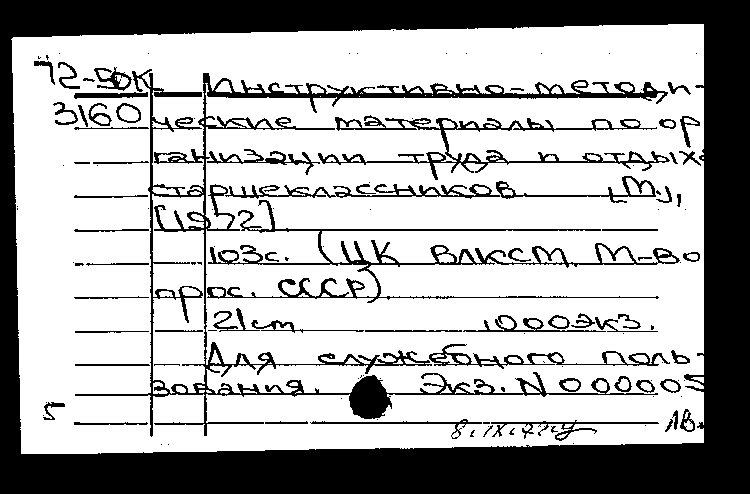 72-5ДК Инструктивно-методи-
3160 ческие материалы по ор
ганизации труда и отдыха
старшеклассников. [М],
[1972].
103с. (ЦК ВЛКСМ. М-во
прос. СССР).
21 cm. 1000экз.
Для служебного поль-
зования. Экз. N 000005
5